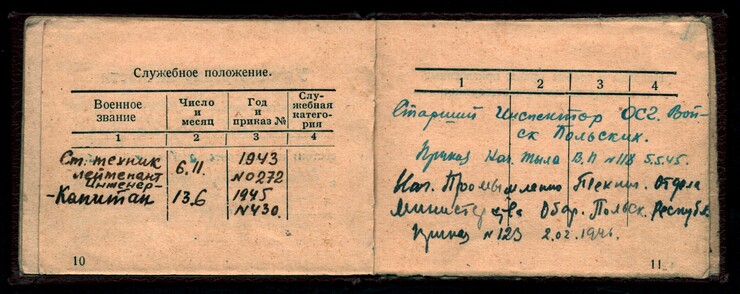 Служебное положение.
Военное звание
Число и месяц
Год и приказ №
Служебная катего-рия
1 2 3 4
Ст. техник лейтенант 6.11. 1943 №0272
инженер-
-Капитан 13.6 1945 №430.
10
1 2 3 4
Старший Инспектор ОСГ. Вой-
ск Польских.
Приказ Нач. тыла В.П №118 5.5.45.
Нач. Промышленно Технич. Отдела
Министерства Обор. Польск. Республ.
Приказ №123 2.02.1946.
11